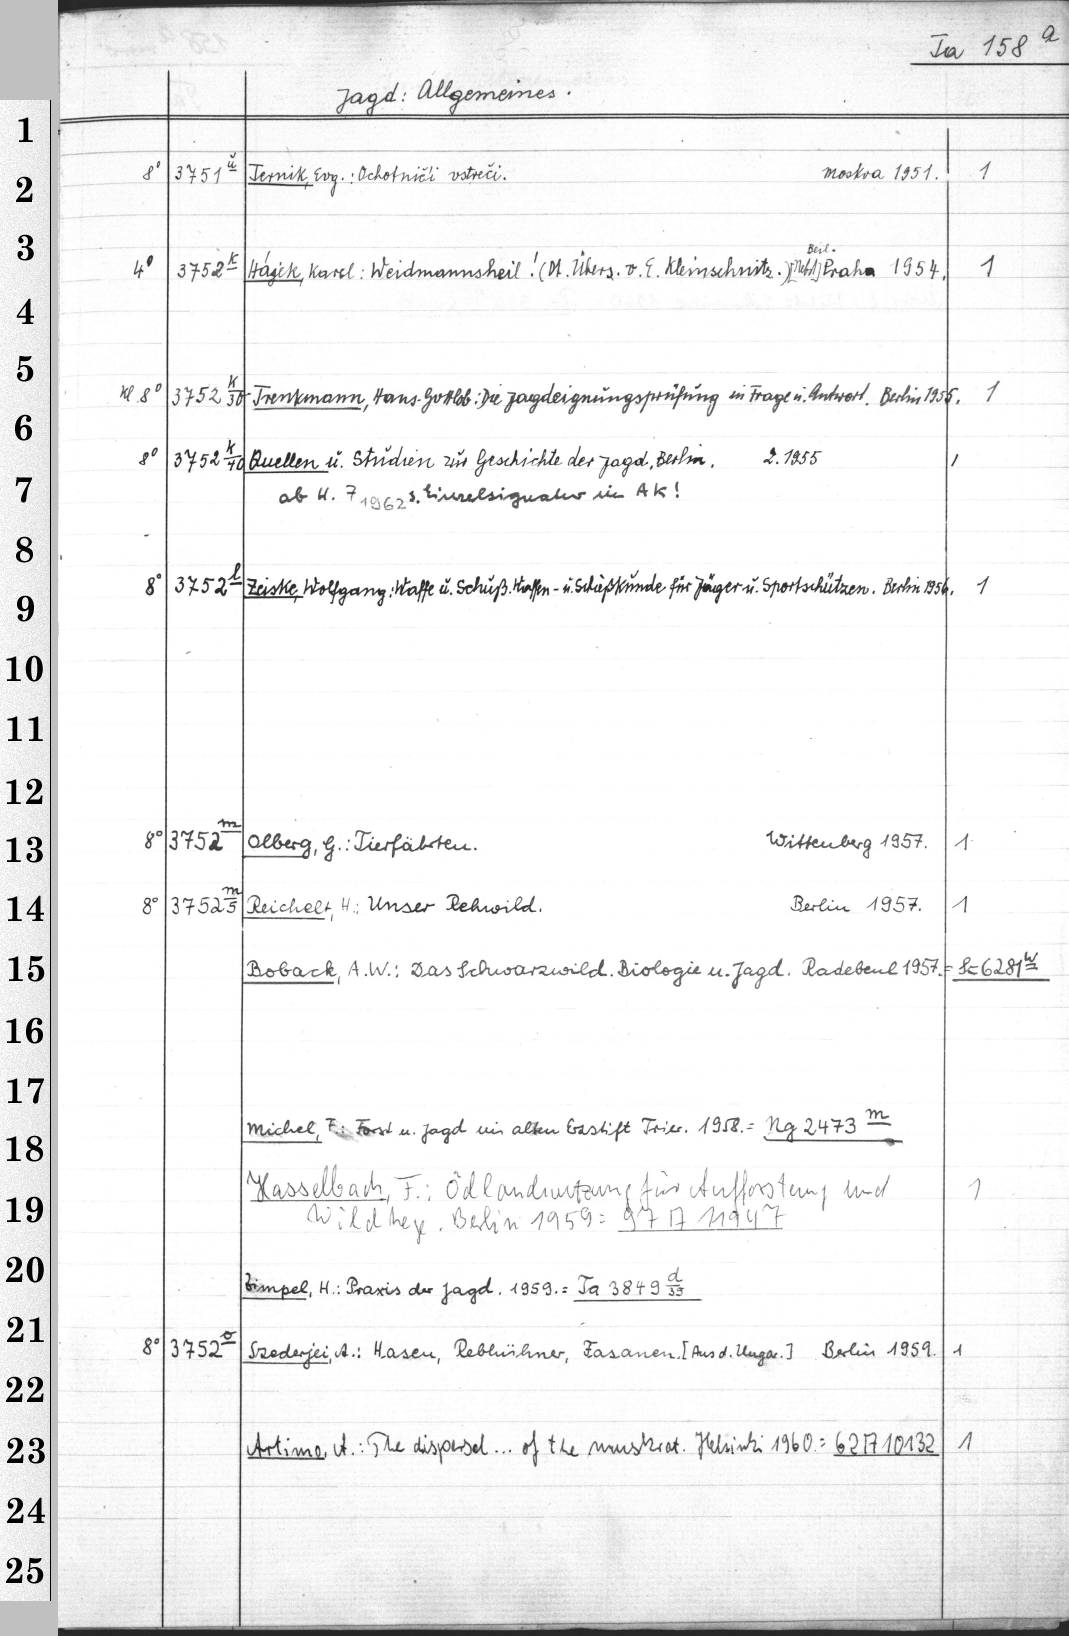 Ta 158 a
Jagd: Allgemeines.
1
2
3
4
5
6
7
8
9
10
11
12
13
14
15
16
17
18
19
20
21
22
23
24
25
8° 3751 u Ternik, Evg.: Ochotniči vstreči. Moskva 1951. 1
Berl.
4° 3752 k Hájek, Karel: Weidmannsheil! (Dt. Übers. v. E. Kleinschnitz.) Praha 1954. 1
Kl 8° 3752 k/30 Trenkmann, Hans-Gottlob: Die Jagdeignungsprüfung in Frage u. Antwort. Berlin 1955. 1
8° 3752 k/40 Quellen u. Studien zur Geschichte der Jagd, Berlin. 2.1955 1
ab H. 7 1962 s. Einzelsignatur im AK!
8° 3752 l Zeiske, Wolfgang: Waffe u. Schuß. Waffen- u. Schießkunde für Jäger u. Sportschützen. Berlin 1956. 1
8° 3752 m Olberg, G.: Tierfährten. Wittenberg 1957. 1
8° 3752 m/5 Reichelt, H.: Unser Rehwild. Berlin 1957. 1
Boback, A.W.: Das Schwarzwild. Biologie u. Jagd. Radebeul 1957. = 6281 w
Michel, F.: Forst u. Jagd im alten Erzstift Trier. 1958. = Ng 2473 m
Hasselbach, F.: Ödlandnutzung für Aufforstung und 1
Wildhege. Berlin 1959 = 97 A 11947
Zimpel, H.: Praxis der Jagd. 1959. = Ta 3849 d/35
8° 3752 o Szederjei, A.: Hasen, Rebhühner, Fasanen. [Aus d. Ungar.] Berlin 1959. 1
Artimo, A.: The dispersal ... of the muskrat. Helsinki 1960. = 62 A 10132 1